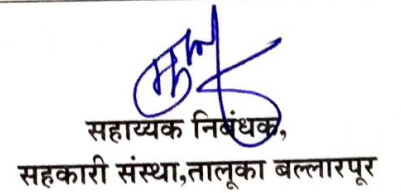 सहाय्यक निबंधक,
सहकारी संस्था,तालूका बल्लारपूर